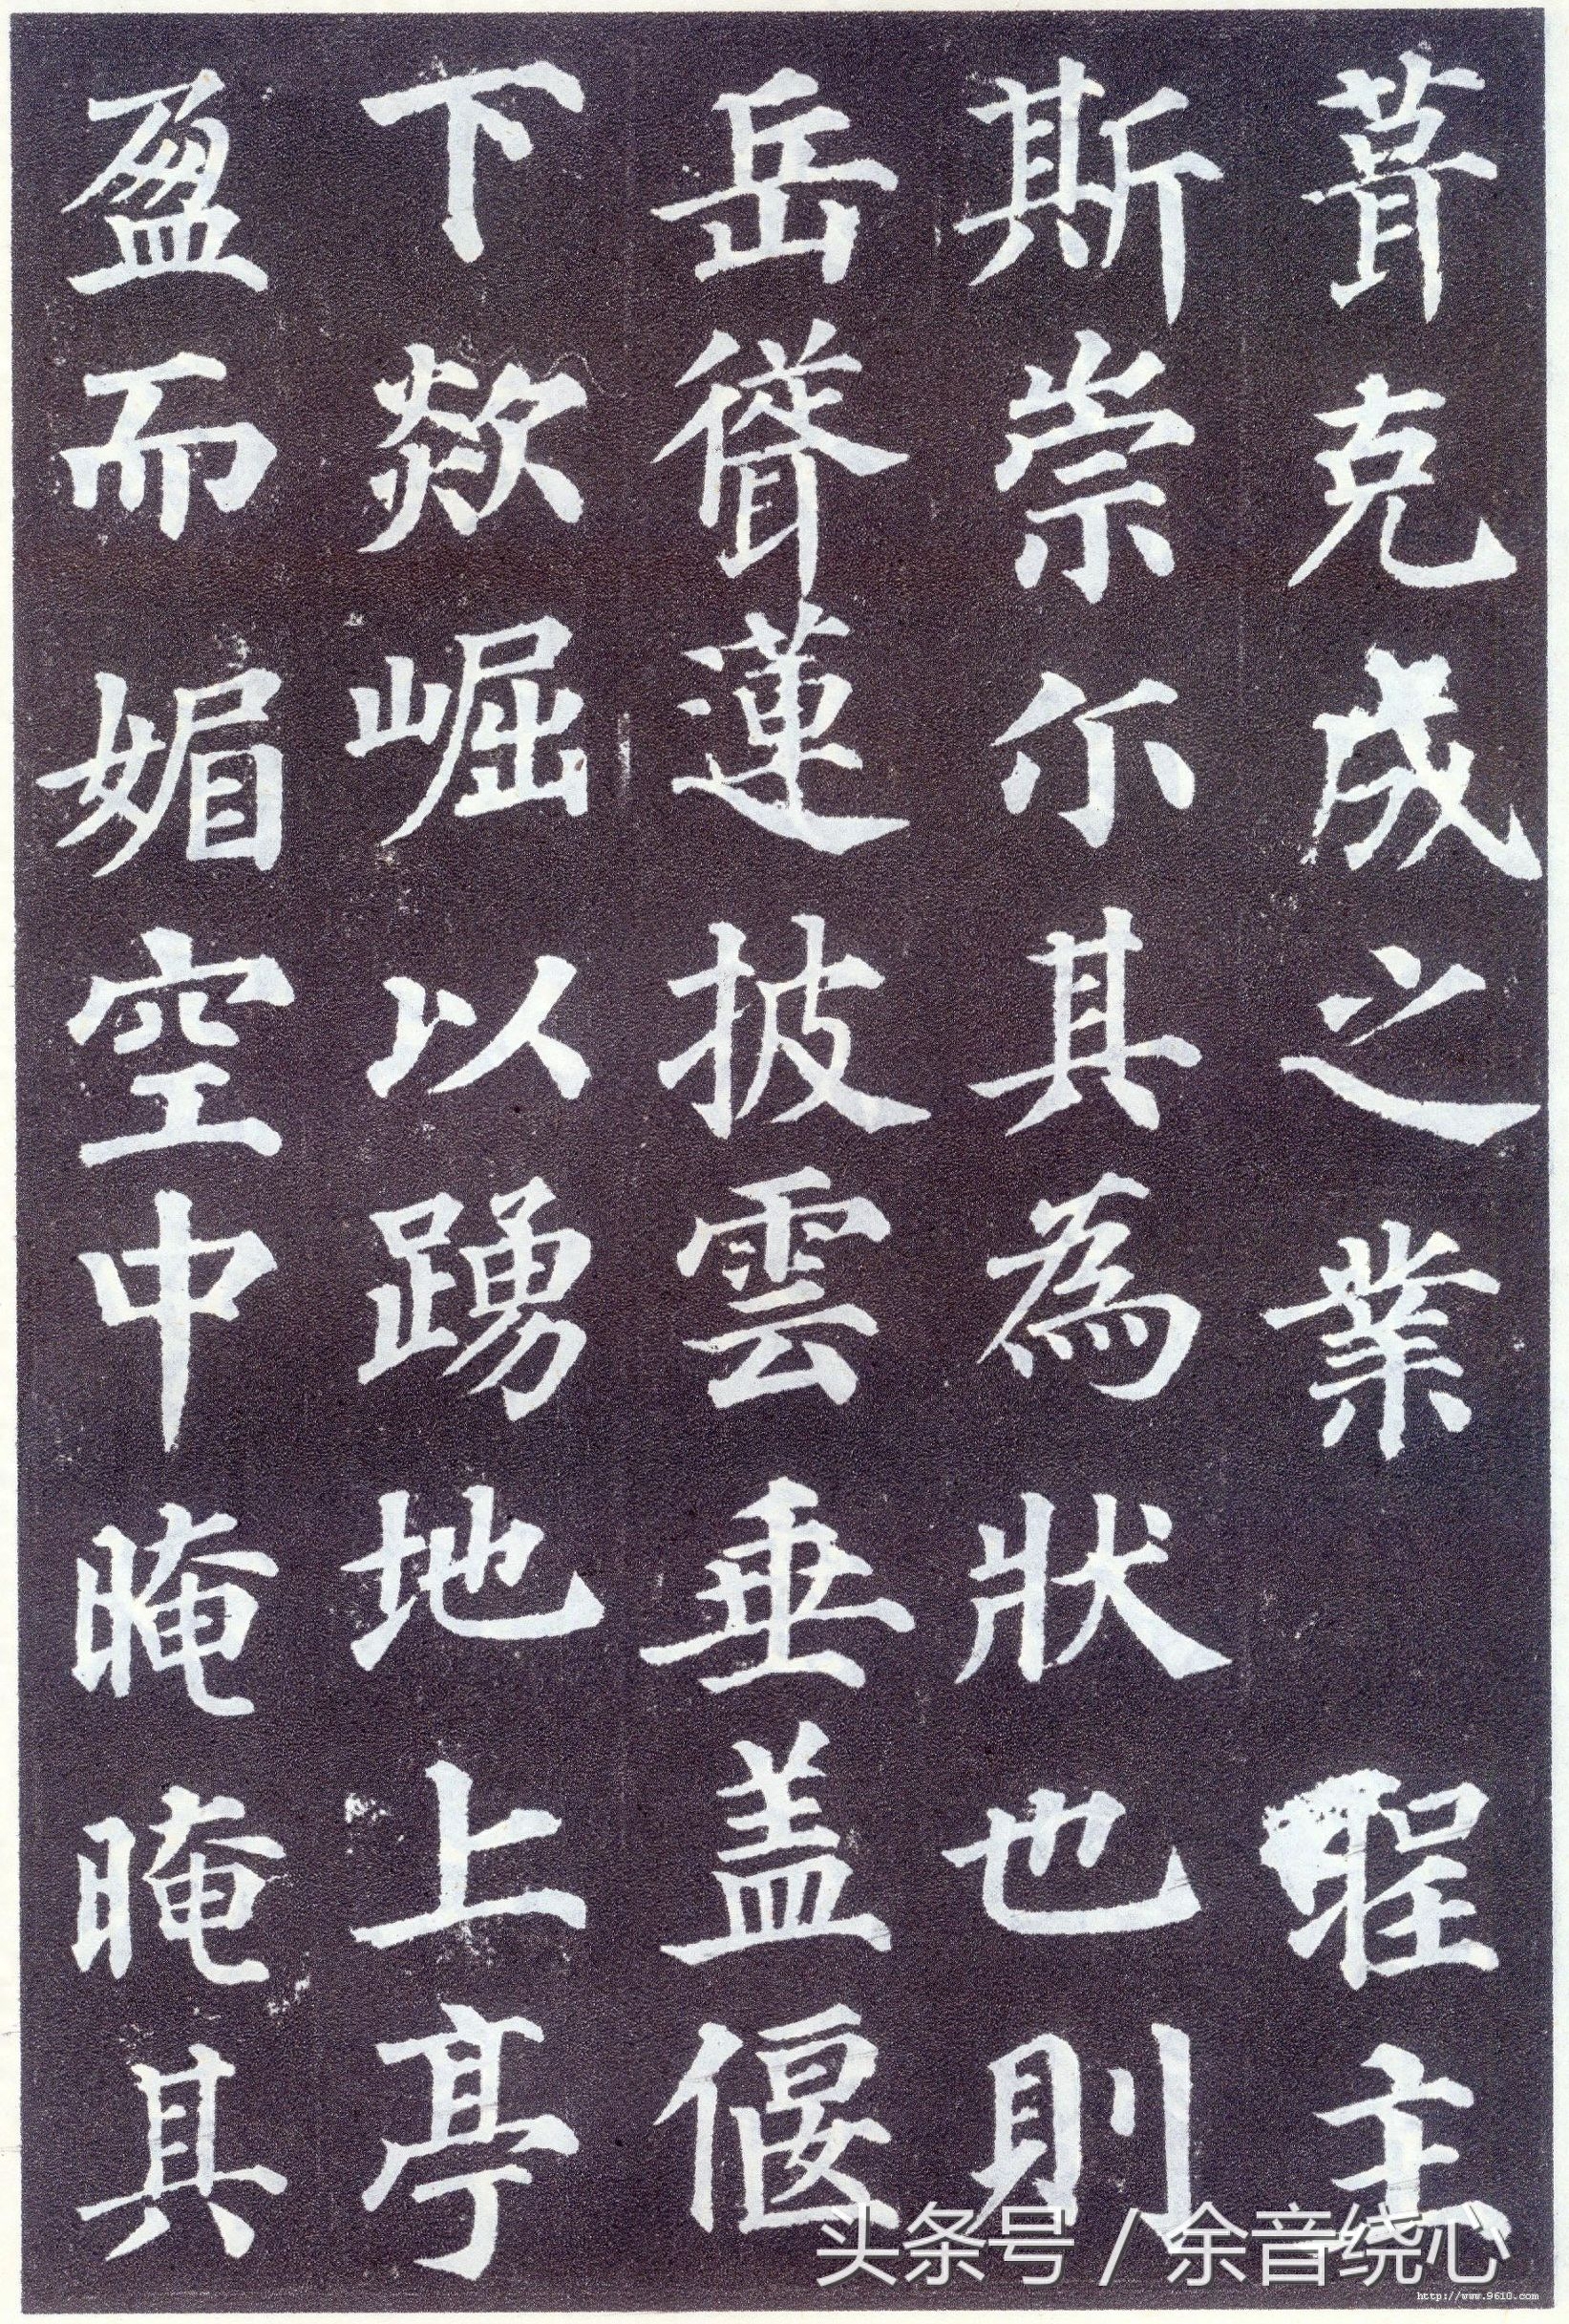 葺克成之業聖主
斯崇尒其為狀也則
岳聳蓮披雲垂盖偃
下欻崛以踴地上亭
盈而媚空中晻晻其
头条号 / 余音绕心
http://www.9610.com